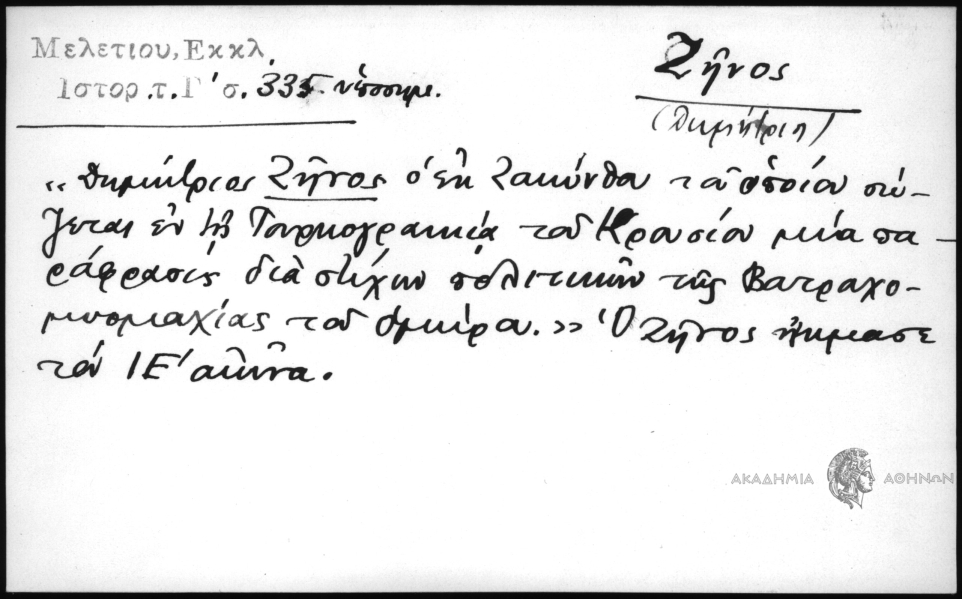 Μελετίου, Εκκλ.
Ιστορ. τ. Γ' σ. 335 υποσημ.
Ζῆνος
(Δημήτριος)
"Δημήτριος Ζῆνος ὁ ἐκ Ζακύνθου τοῦ ὁποίου σώ-
ζεται ἐν τῇ Τουρκογραικίᾳ τοῦ Κρουσίου μία πα-
ράφρασις διὰ στίχων πολιτικῶν τῆς Βατραχο-
μυομαχίας τοῦ Ὁμήρου." Ὁ Ζῆνος ἤκμασε
τὸν ΙΕ' αἰῶνα.
ΑΚΑΔΗΜΙΑ ΑΘΗΝΩΝ